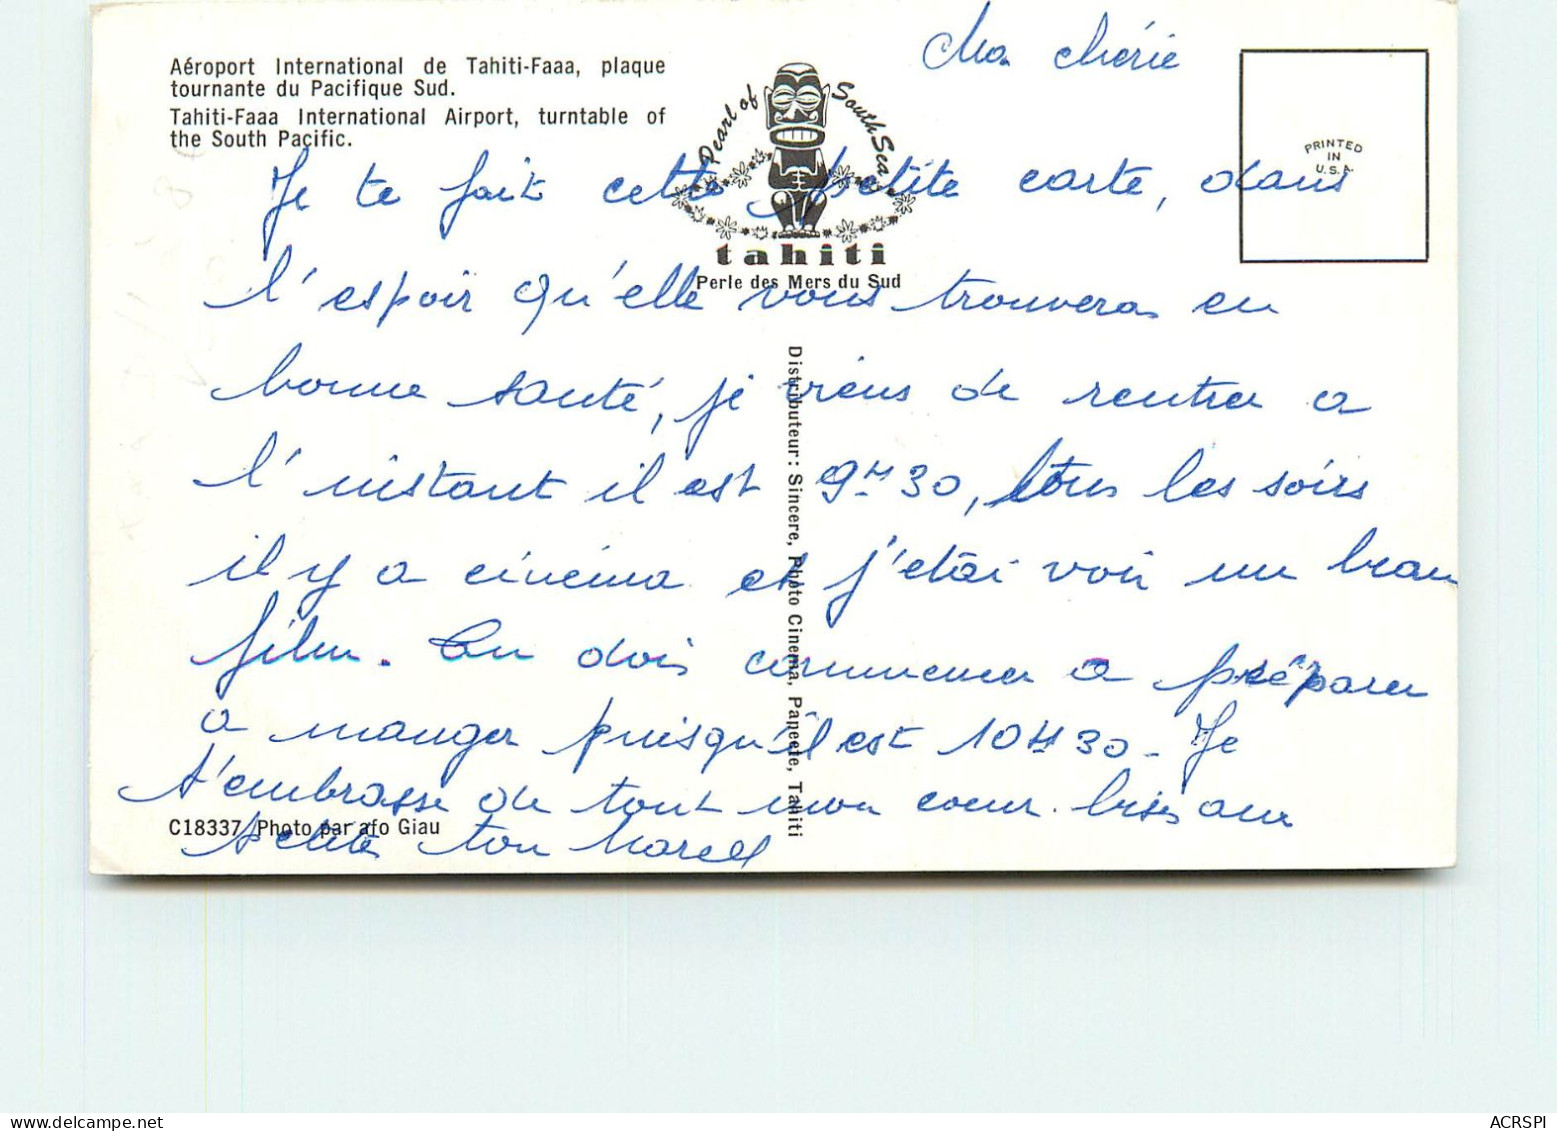 Aéroport International de Tahiti-Faaa, plaque
tournante du Pacifique Sud.
Tahiti-Faaa International Airport, turntable of
the South Pacific.
Pearl of South Sea
tahiti
Perle des Mers du Sud
PRINTED
IN
U.S.A.
Ma chérie
Je te fait cette petite carte, dans
l'espoir qu'elle vous trouveras en
bonne santé, je viens de rentrer a
l'instant il est 9H30, tous les soirs
il y a cinéma et j'étai voir un beau
film. On dois commencer a préparer
a manger puisqu'il est 10H30 - Je
t'embrasse de tout mon coeur. bises aux
petites ton Marcel
Distributeur: Sincere, Photo Cinema, Papeete, Tahiti
C18337 Photo par afo Giau
ACRSPI
www.delcampe.net